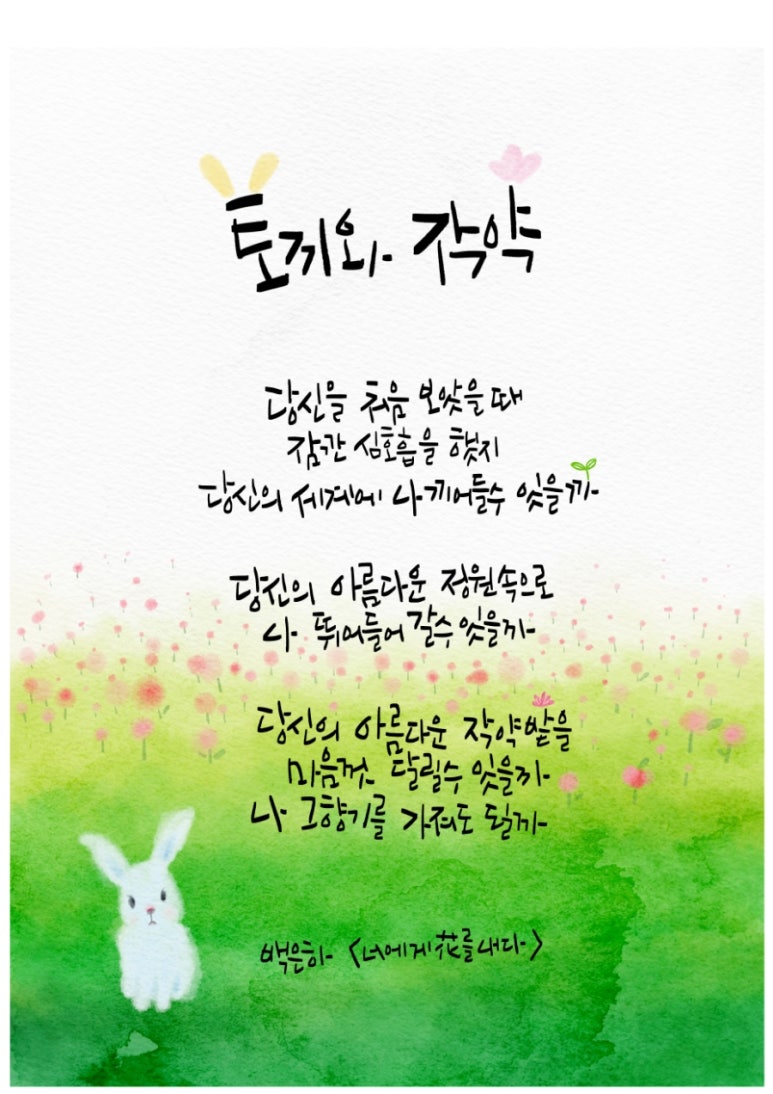 토끼와 작약
당신을 처음 보았을 때
잠깐 심호흡을 했지
당신의 세계에 나 끼어들수 있을까
당신의 아름다운 정원속으로
나 뛰어들어 갈수 있을까
당신의 아름다운 작약밭을
마음껏 달릴수 있을까
나 그향기를 가져도 될까
백은하 〈너에게 花를내다〉